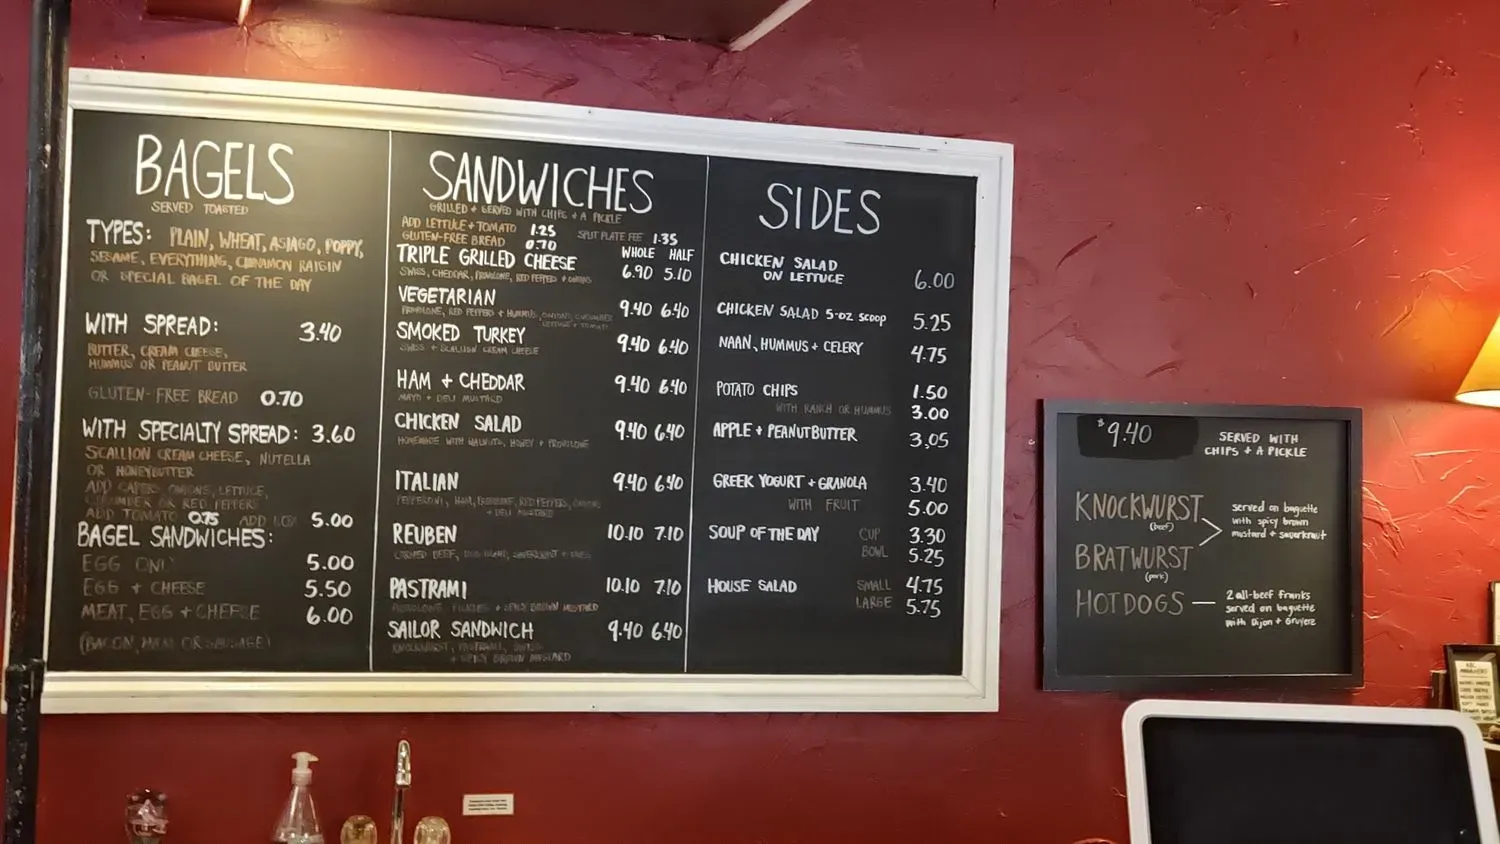 BAGELS
SERVED TOASTED
TYPES: PLAIN, WHEAT, ASIAGO, POPPY,
SESAME, EVERYTHING, CINNAMON RAISIN
OR SPECIAL BAGEL OF THE DAY
WITH SPREAD: 3.40
BUTTER, CREAM CHEESE,
HUMMUS OR PEANUT BUTTER
GLUTEN-FREE BREAD 0.70
WITH SPECIALTY SPREAD: 3.60
SCALLION CREAM CHEESE, NUTELLA
OR HONEYBUTTER
ADD CAPERS, ONIONS, LETTUCE,
CUCUMBER OR RED PEPPERS
ADD TOMATO 0.75 ADD LOX 5.00
BAGEL SANDWICHES:
EGG ONLY 5.00
EGG + CHEESE 5.50
MEAT, EGG + CHEESE 6.00
(BACON, HAM OR SAUSAGE)
SANDWICHES
GRILLED + SERVED WITH CHIPS + A PICKLE
ADD LETTUCE + TOMATO 1.25 SPLIT PLATE FEE 1.35
GLUTEN-FREE BREAD 0.70
WHOLE HALF
TRIPLE GRILLED CHEESE 6.90 5.10
SWISS, CHEDDAR, PROVOLONE, RED PEPPERS + ONIONS
VEGETARIAN 9.40 6.40
PROVOLONE, RED PEPPERS + HUMMUS, ONIONS, CUCUMBER
LETTUCE + TOMATO
SMOKED TURKEY 9.40 6.40
SWISS + SCALLION CREAM CHEESE
HAM + CHEDDAR 9.40 6.40
MAYO + DELI MUSTARD
CHICKEN SALAD 9.40 6.40
HOMEMADE WITH WALNUTS, HONEY + PROVOLONE
ITALIAN 9.40 6.40
PEPPERONI, HAM, PROVOLONE, RED PEPPERS, ONIONS
+ DELI MUSTARD
REUBEN 10.10 7.10
CORNED BEEF, SAUERKRAUT + SWISS
PASTRAMI 10.10 7.10
PROVOLONE, PICKLES + SPICY BROWN MUSTARD
SAILOR SANDWICH 9.40 6.40
KNOCKWURST, PASTRAMI, SWISS
+ SPICY BROWN MUSTARD
SIDES
CHICKEN SALAD
ON LETTUCE 6.00
CHICKEN SALAD 5-OZ SCOOP 5.25
NAAN, HUMMUS + CELERY 4.75
POTATO CHIPS 1.50
WITH RANCH OR HUMMUS 3.00
APPLE + PEANUT BUTTER 3.05
GREEK YOGURT + GRANOLA 3.40
WITH FRUIT 5.00
SOUP OF THE DAY CUP 3.30
BOWL 5.25
HOUSE SALAD SMALL 4.75
LARGE 5.75
$9.40 SERVED WITH
CHIPS + A PICKLE
KNOCKWURST
(beef)
BRATWURST
(pork)
served on baguette
with spicy brown
mustard + sauerkraut
HOTDOGS — 2 all-beef franks
served on baguette
with Dijon + Gruyere